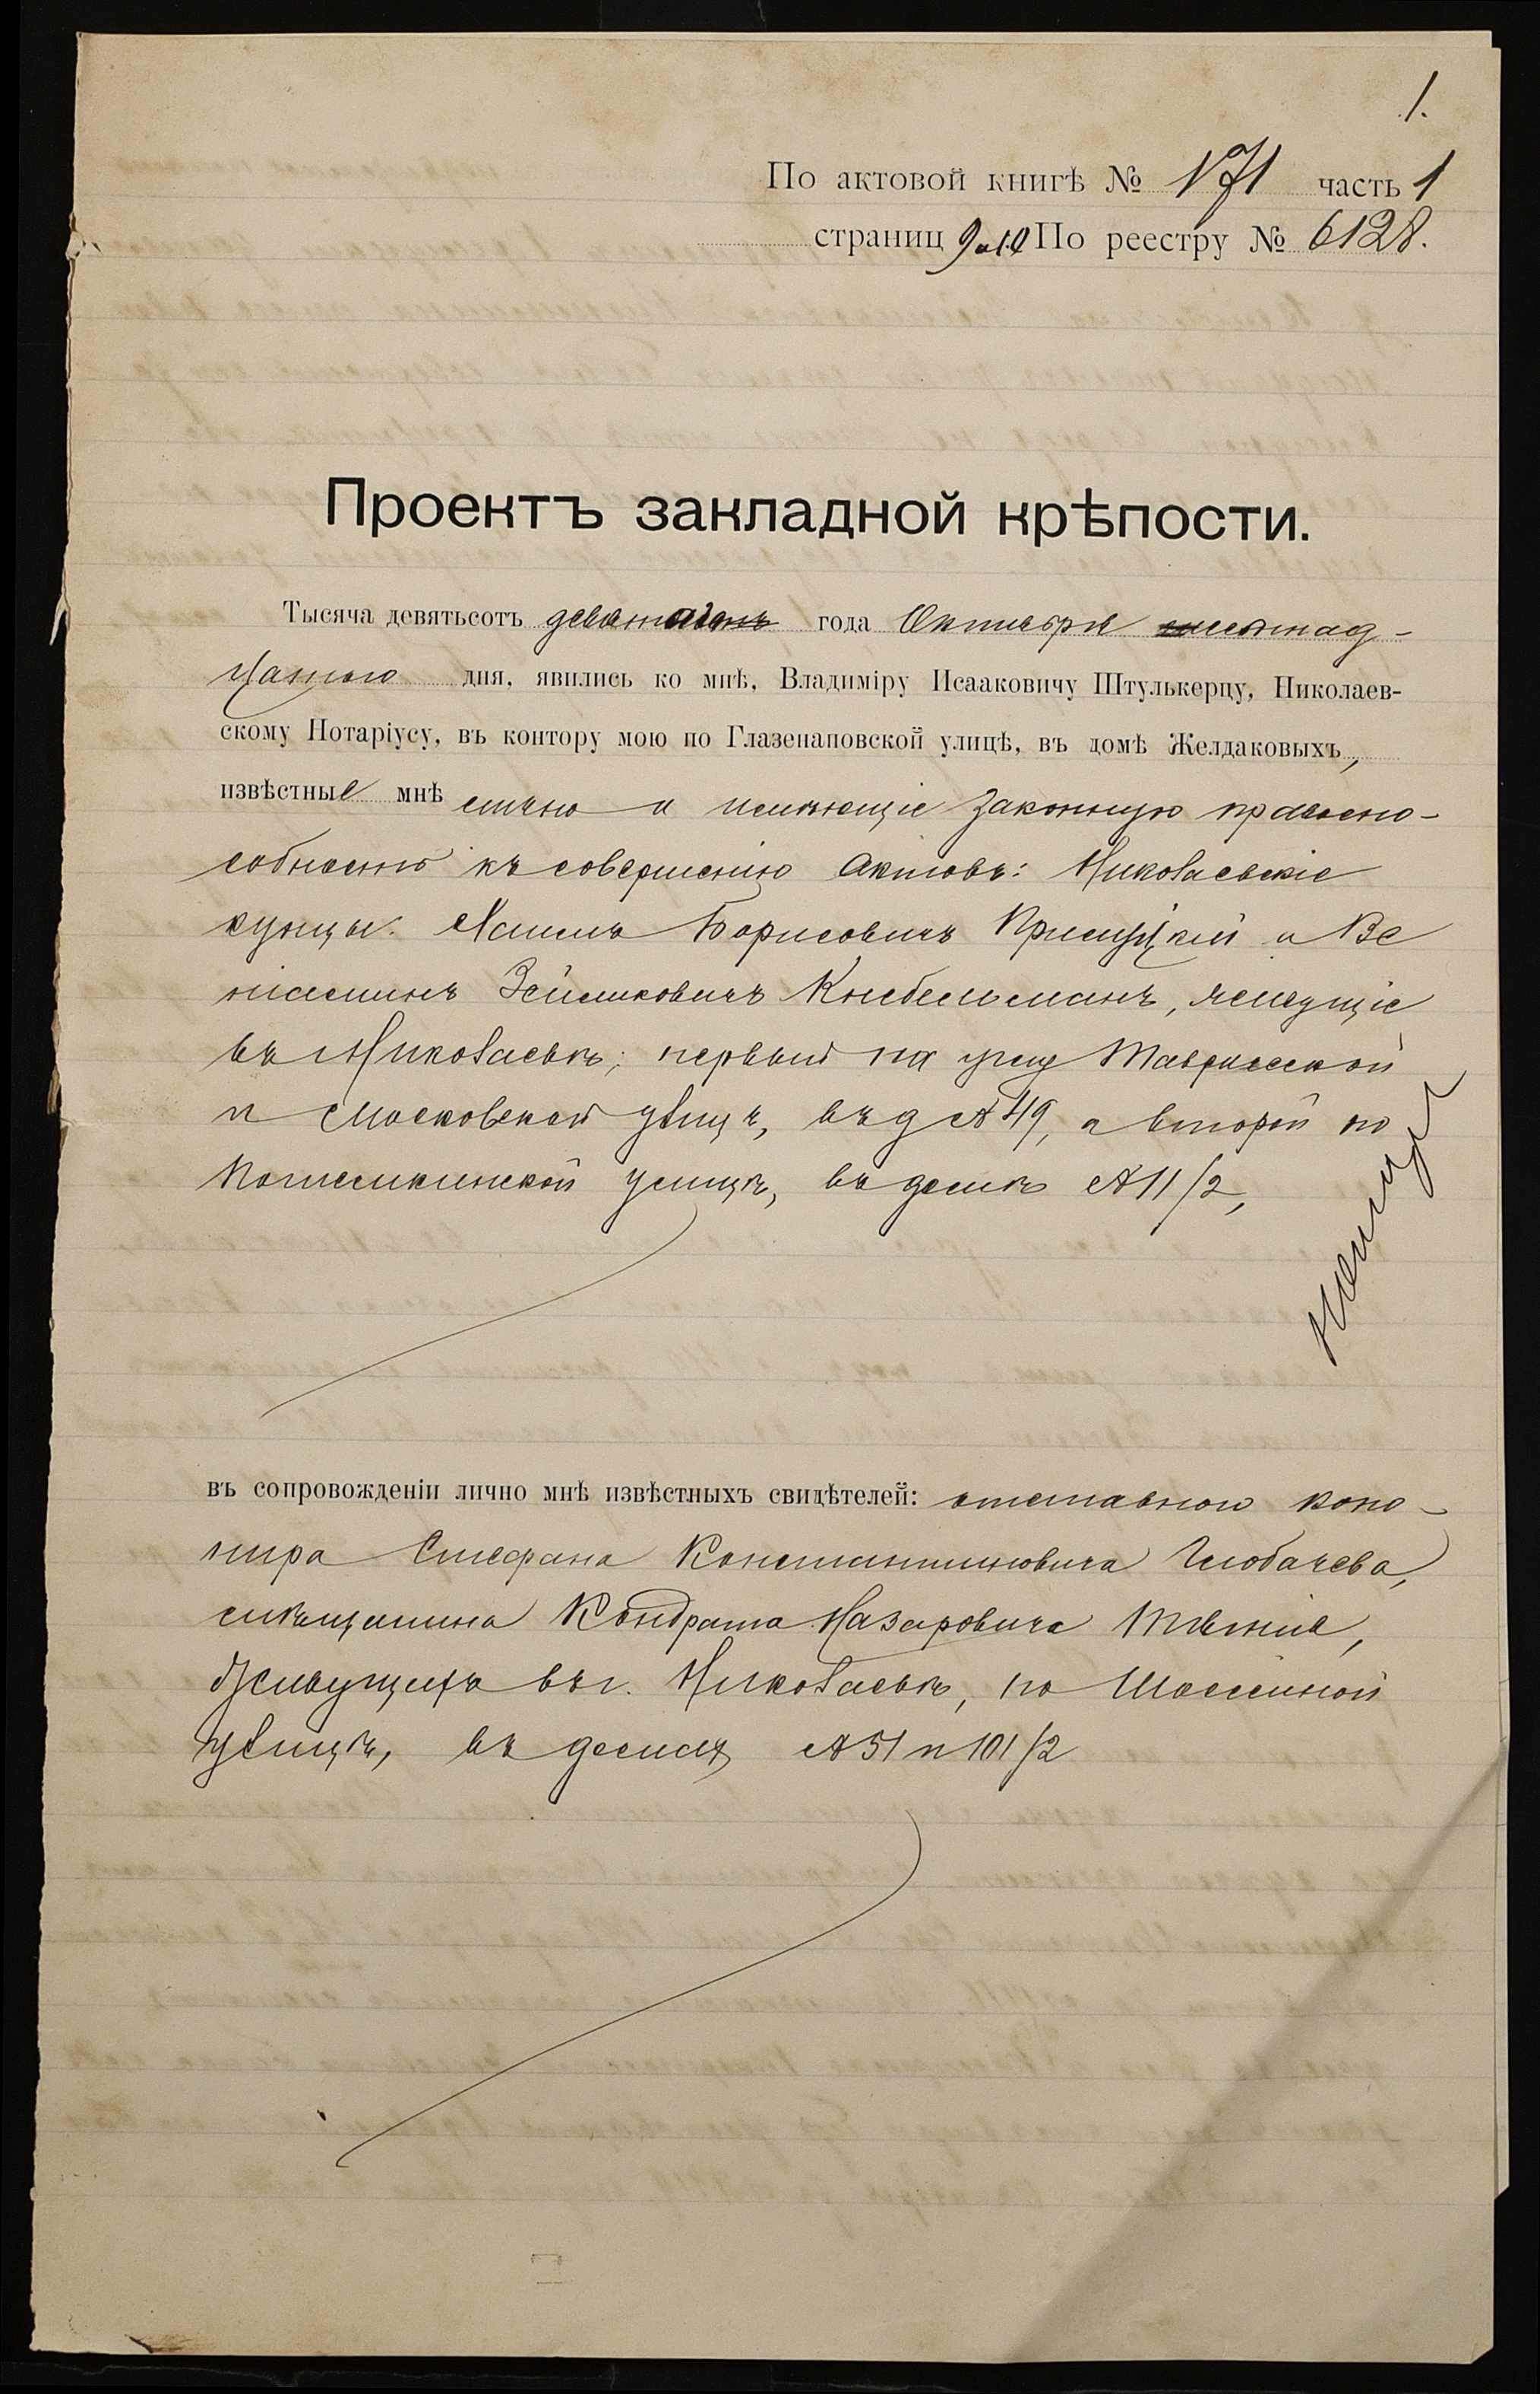 1.
По актовой книгѣ № 171 часть 1
страниц 9 и 10 По реестру № 6128.
Проектъ закладной крѣпости.
Тысяча девятьсотъ года Октября
дня, явились ко мнѣ, Владиміру Исааковичу Штулькерцу, Николаев-
скому Нотаріусу, въ контору мою по Глазенаповской улицѣ, въ домѣ Желдаковыхъ,
извѣстные мнѣ лично и имѣющіе законную правоспо-
собность къ совершенію актовъ: Николаевскіе
купцы: Хаимъ Борисовичъ и Ве
ніаминъ Зейликовичъ Книбельманъ, живущіе
въ Николаевѣ, первый на углу Таврической
и Московской улицъ, въ д № 49, а второй по
Потемкинской улицѣ, въ домѣ № 11/2,
въ сопровожденіи лично мнѣ извѣстныхъ свидѣтелей: отставного кано-
нира Стефана Константиновича Глобачева,
мѣщанина Кондрата Назаровича
живущихъ въ г. Николаевѣ, по
улицѣ, въ домахъ № 51 и 101/2